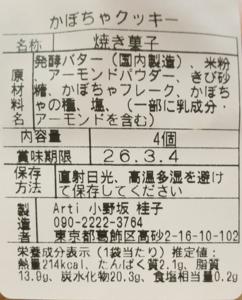 かぼちゃクッキー
名称 焼き菓子
原材料名 発酵バター（国内製造）、米粉
、アーモンドパウダー、きび砂
糖、かぼちゃフレーク、かぼち
ゃの種、塩、（一部に乳成分・
アーモンドを含む）
内容量 4個
賞味期限 26.3.4
保存方法 直射日光、高温多湿を避け
て保存してください
製造者 Arti 小野坂 桂子
090-2222-3764
東京都葛飾区高砂2-16-10-102
栄養成分表示（1袋当たり）推定値：
熱量214kcal、たんぱく質2.1g、脂質
13.9g、炭水化物20.3g、食塩相当量0.2g